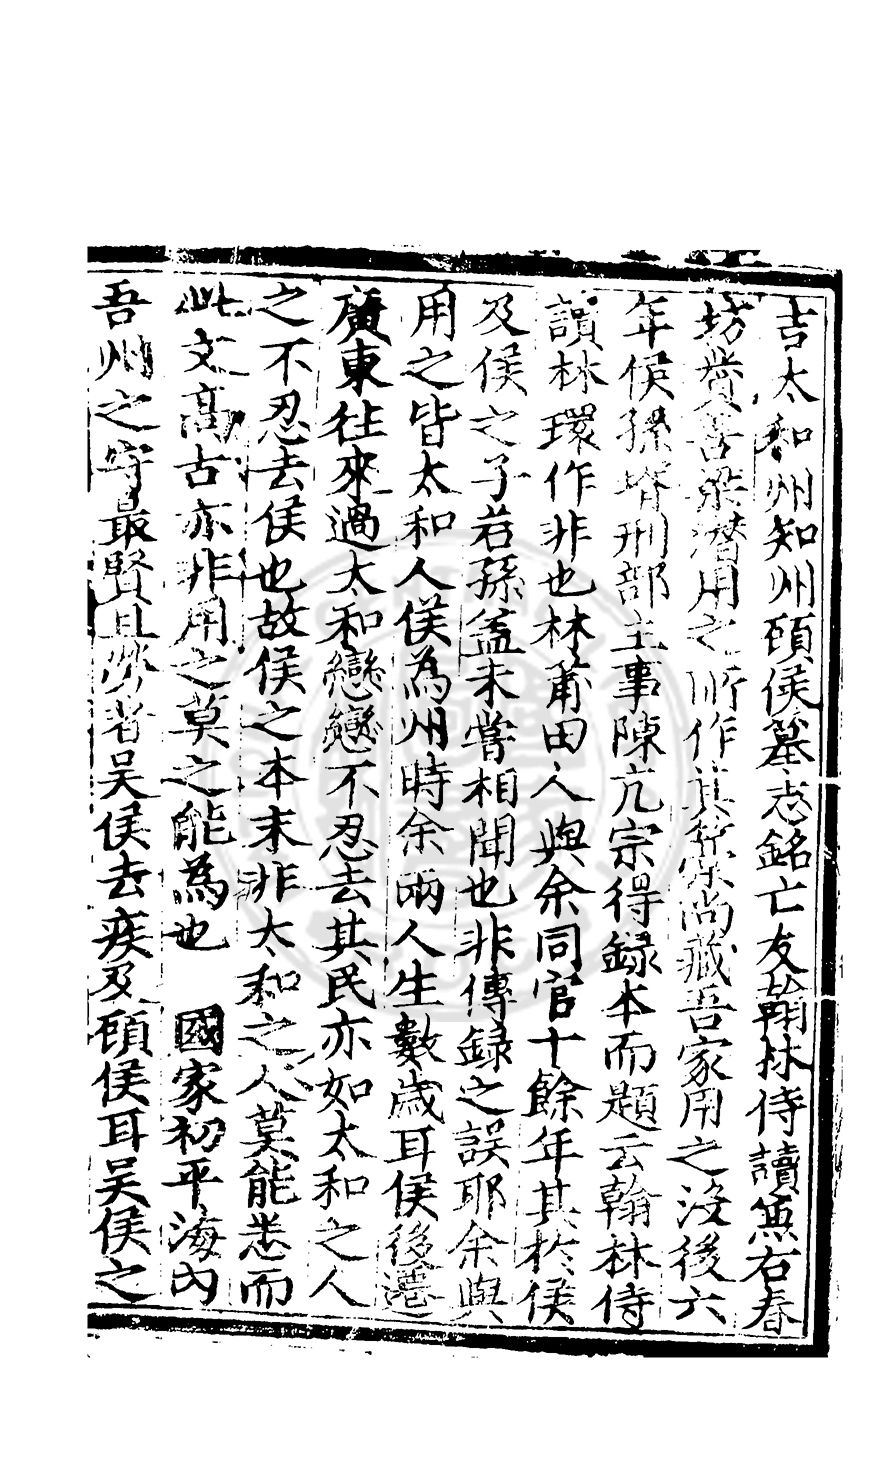 吉太和州知州顧侯墓志銘亡友翰林侍讀兼右春
坊贊善梁潛用之所作其藁尚藏吾家用之沒後六
年侯孫壻刑部主事陳亢宗得錄本而題云翰林侍
讀林環作非也林莆田人與余同官十餘年其於侯
及侯之子若孫盖未嘗相聞也非傳録之誤耶余與
用之皆太和人侯為州時余兩人生數歲耳侯後遷
廣東往來過太和戀戀不忍去其民亦如太和之人
之不忍去侯也故侯之本末非太和之人莫能悉而
此文高古亦非用之莫之能為也 國家初平海內
吾州之守最賢且勞者吴侯去疾及顧侯耳吴侯之